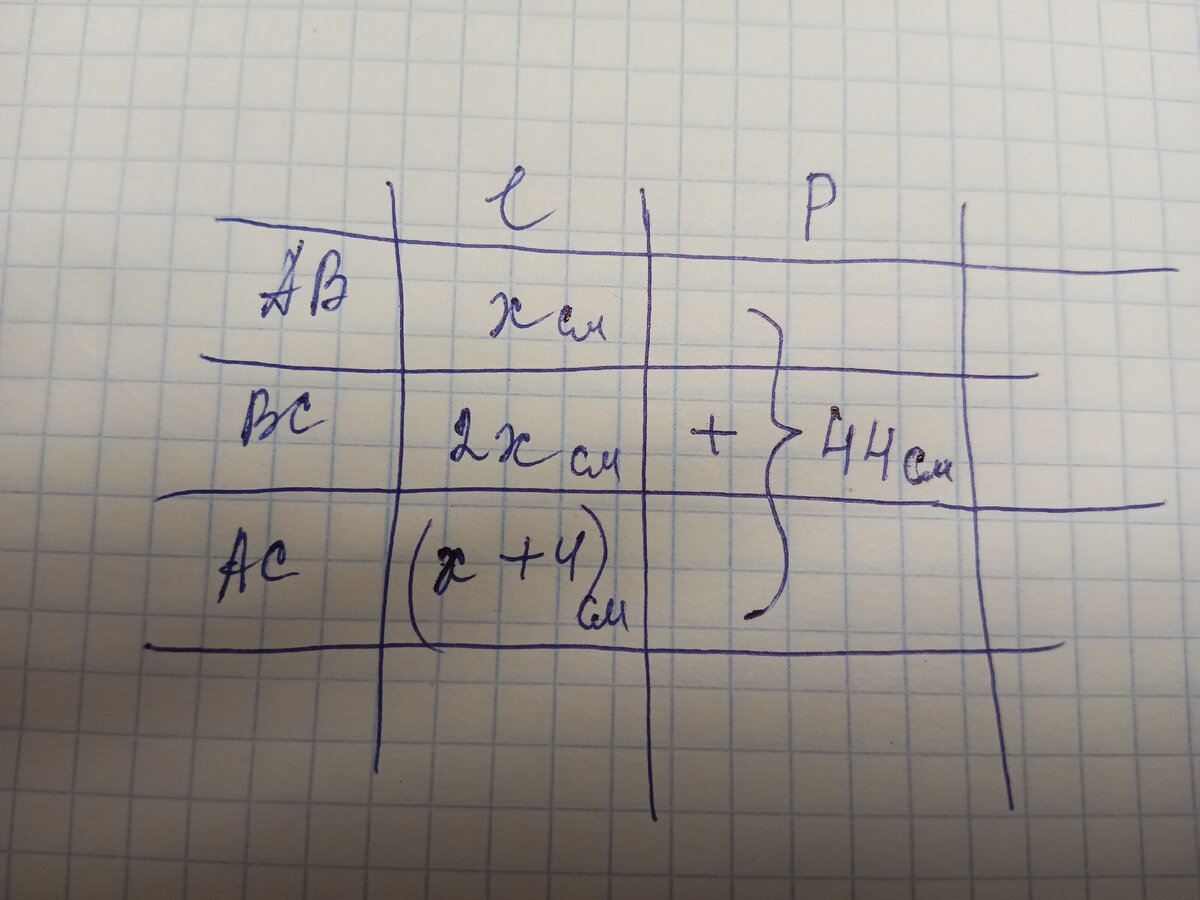 ℓ P
AB x см
BC 2x см + } 44 см
AC (x + 4) см